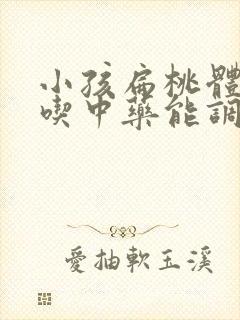 小孩扁桃體
喫中藥能調
愛抽軟玉溪